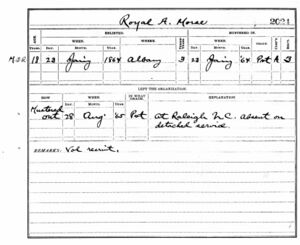 Royal A. Morse 2021
ENLISTED. MUSTERED IN.
AGE. WHEN. WHERE. WHEN. GRADE. CO. REG.
Years. Day. Month. Year. Day. Month. Year.
M.S.R. 18 23 1864 Albany 3 23 64 Pvt A 3
LEFT THE ORGANIZATION.
HOW. WHEN. IN WHAT GRADE. EXPLANATION.
Day. Month. Year.
Mustered
out 28 Aug. 65 Pvt At Raleigh N.C. Absent on
detached service.
REMARKS: Vol recruit.